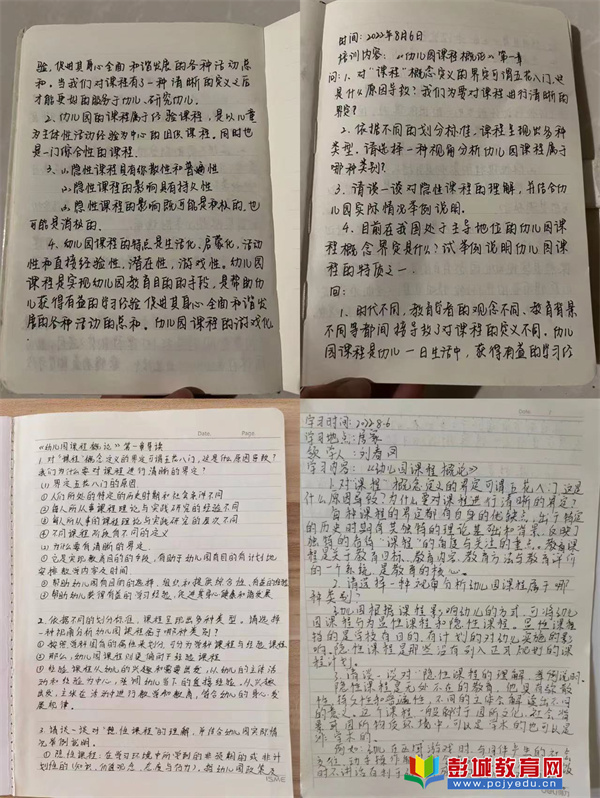 验,促进其身心全面和谐发展的各种活动总
和。当我们对课程有了一种清晰的定义之后
才能更好的服务于幼儿、研究幼儿。
2、幼儿园的课程属于经验课程,是以儿童
为主体性活动经验为中心的 课程。同时也
是一门综合性的课程。
3、⑴、隐性课程具有弥散性和普遍性
⑵、隐性课程的影响具有持久性
⑶、隐性课程的影响既可能是积极的,也
可能是消极的。
4、幼儿园课程的特点是生活化、启蒙化,活动
性和直接经验性,潜在性,游戏性。幼儿园
课程是实现幼儿园教育目的的手段,是帮助幼
儿获得有益的学习经验促进其身心全面和谐发
展的各种活动的总和。幼儿园课程的游戏化
时间:2022年8月6日
培训内容:《幼儿园课程概论》第一章
问:1、对“课程”概念定义的界定可谓五花八门,这
是什么原因导致?我们为要对课程进行清晰的
界定?
2、依据不同的划分标准,课程呈现出多种
类型,请选择一种视角分析幼儿园课程属于
哪种类别?
3、请谈一谈对隐性课程的理解,并结合幼
儿园实际情况举例说明。
4、目前在我国处于主导地位的幼儿园课
程概念界定是什么?试举例说明幼儿园课
程的特质之一。
1、时代不同,教育学者的观念不同、教育背景
不同等都间接导致了对课程的定义不同。幼儿
园课程是幼儿一日生活中,获得有益的学习经
Date. Page.
《幼儿园课程概论》第一章导读
1.对“课程”概念定义的界定可谓五花八门,这是什么原因导致?
我们为什么要对课程进行清晰的界定?
(1)界定五花八门的原因
①人们所处的特定的历史时期和社会条件不同
②每人所从事课程理论与实践研究的经验不同
③每人所从事的课程理论与实践研究的层次不同
④不同课程所有不同的定义
(2)为什么要有清晰的界定。
①它是实现教育目的的手段,有助于幼儿园有目的有计划地
安排教学内容及时间
②帮助幼儿园有目的的选择、组织和提供综合性、有益的经验
③帮助幼儿获得有益的学习经验,促进其身心健康和谐发展
2.依据不同的划分标准,课程呈现出多种类型,请选择
一种视角分析幼儿园课程属于哪种类别?
①按照课程固有的属性来划分,可分为学科课程与经验课程
②那么,幼儿园课程则更倾向于经验课程
③经验课程从幼儿的兴趣和需要出发,以幼儿的主体活动
和经验为中心,强调幼儿当下的直接经验,从兴趣
出发,主张在活动中进行教养和教育,符合幼儿的身心发
展规律。
3.请谈一谈对“隐性课程”的理解,并结合幼儿园实际情
况举例说明。
①隐性课程:在学习环境中所学到的非预期的或非计
划性的(知识、价值观念、态度与行为),
Date
学习时间:2022.8.6
学习地点:居家
学习内容:《幼儿园课程概论》
1.对课程”概念定义的界定可谓五花八门,这是
什么原因导致?为什么要对课程进行清晰的界定?
每种课程的界定都有自身的优缺点,出于特定
的历史时期有其独特的理论基础和背景,反映了
独特的有待“课程”的角度与关注的重点。教育课
程是关于教育目标、教育内容、教育方法与教育评价
的一个系统,是教育的核心。
2.请选择一种视角分析幼儿园课程属于哪
种类别?
幼儿园根据课程影响幼儿的方式,可将幼儿
园课程分为显性课程和隐性课程。显性课程
指的是学校有目的、有计划的对幼儿实施的影
响。隐性课程是那些没有列入正式规划的课
程计划。
3.请谈一谈对“隐性课程的理解,举例说明。
隐性课程是无处不在的教育,
彭城教育网
www.pcjyedu.cn